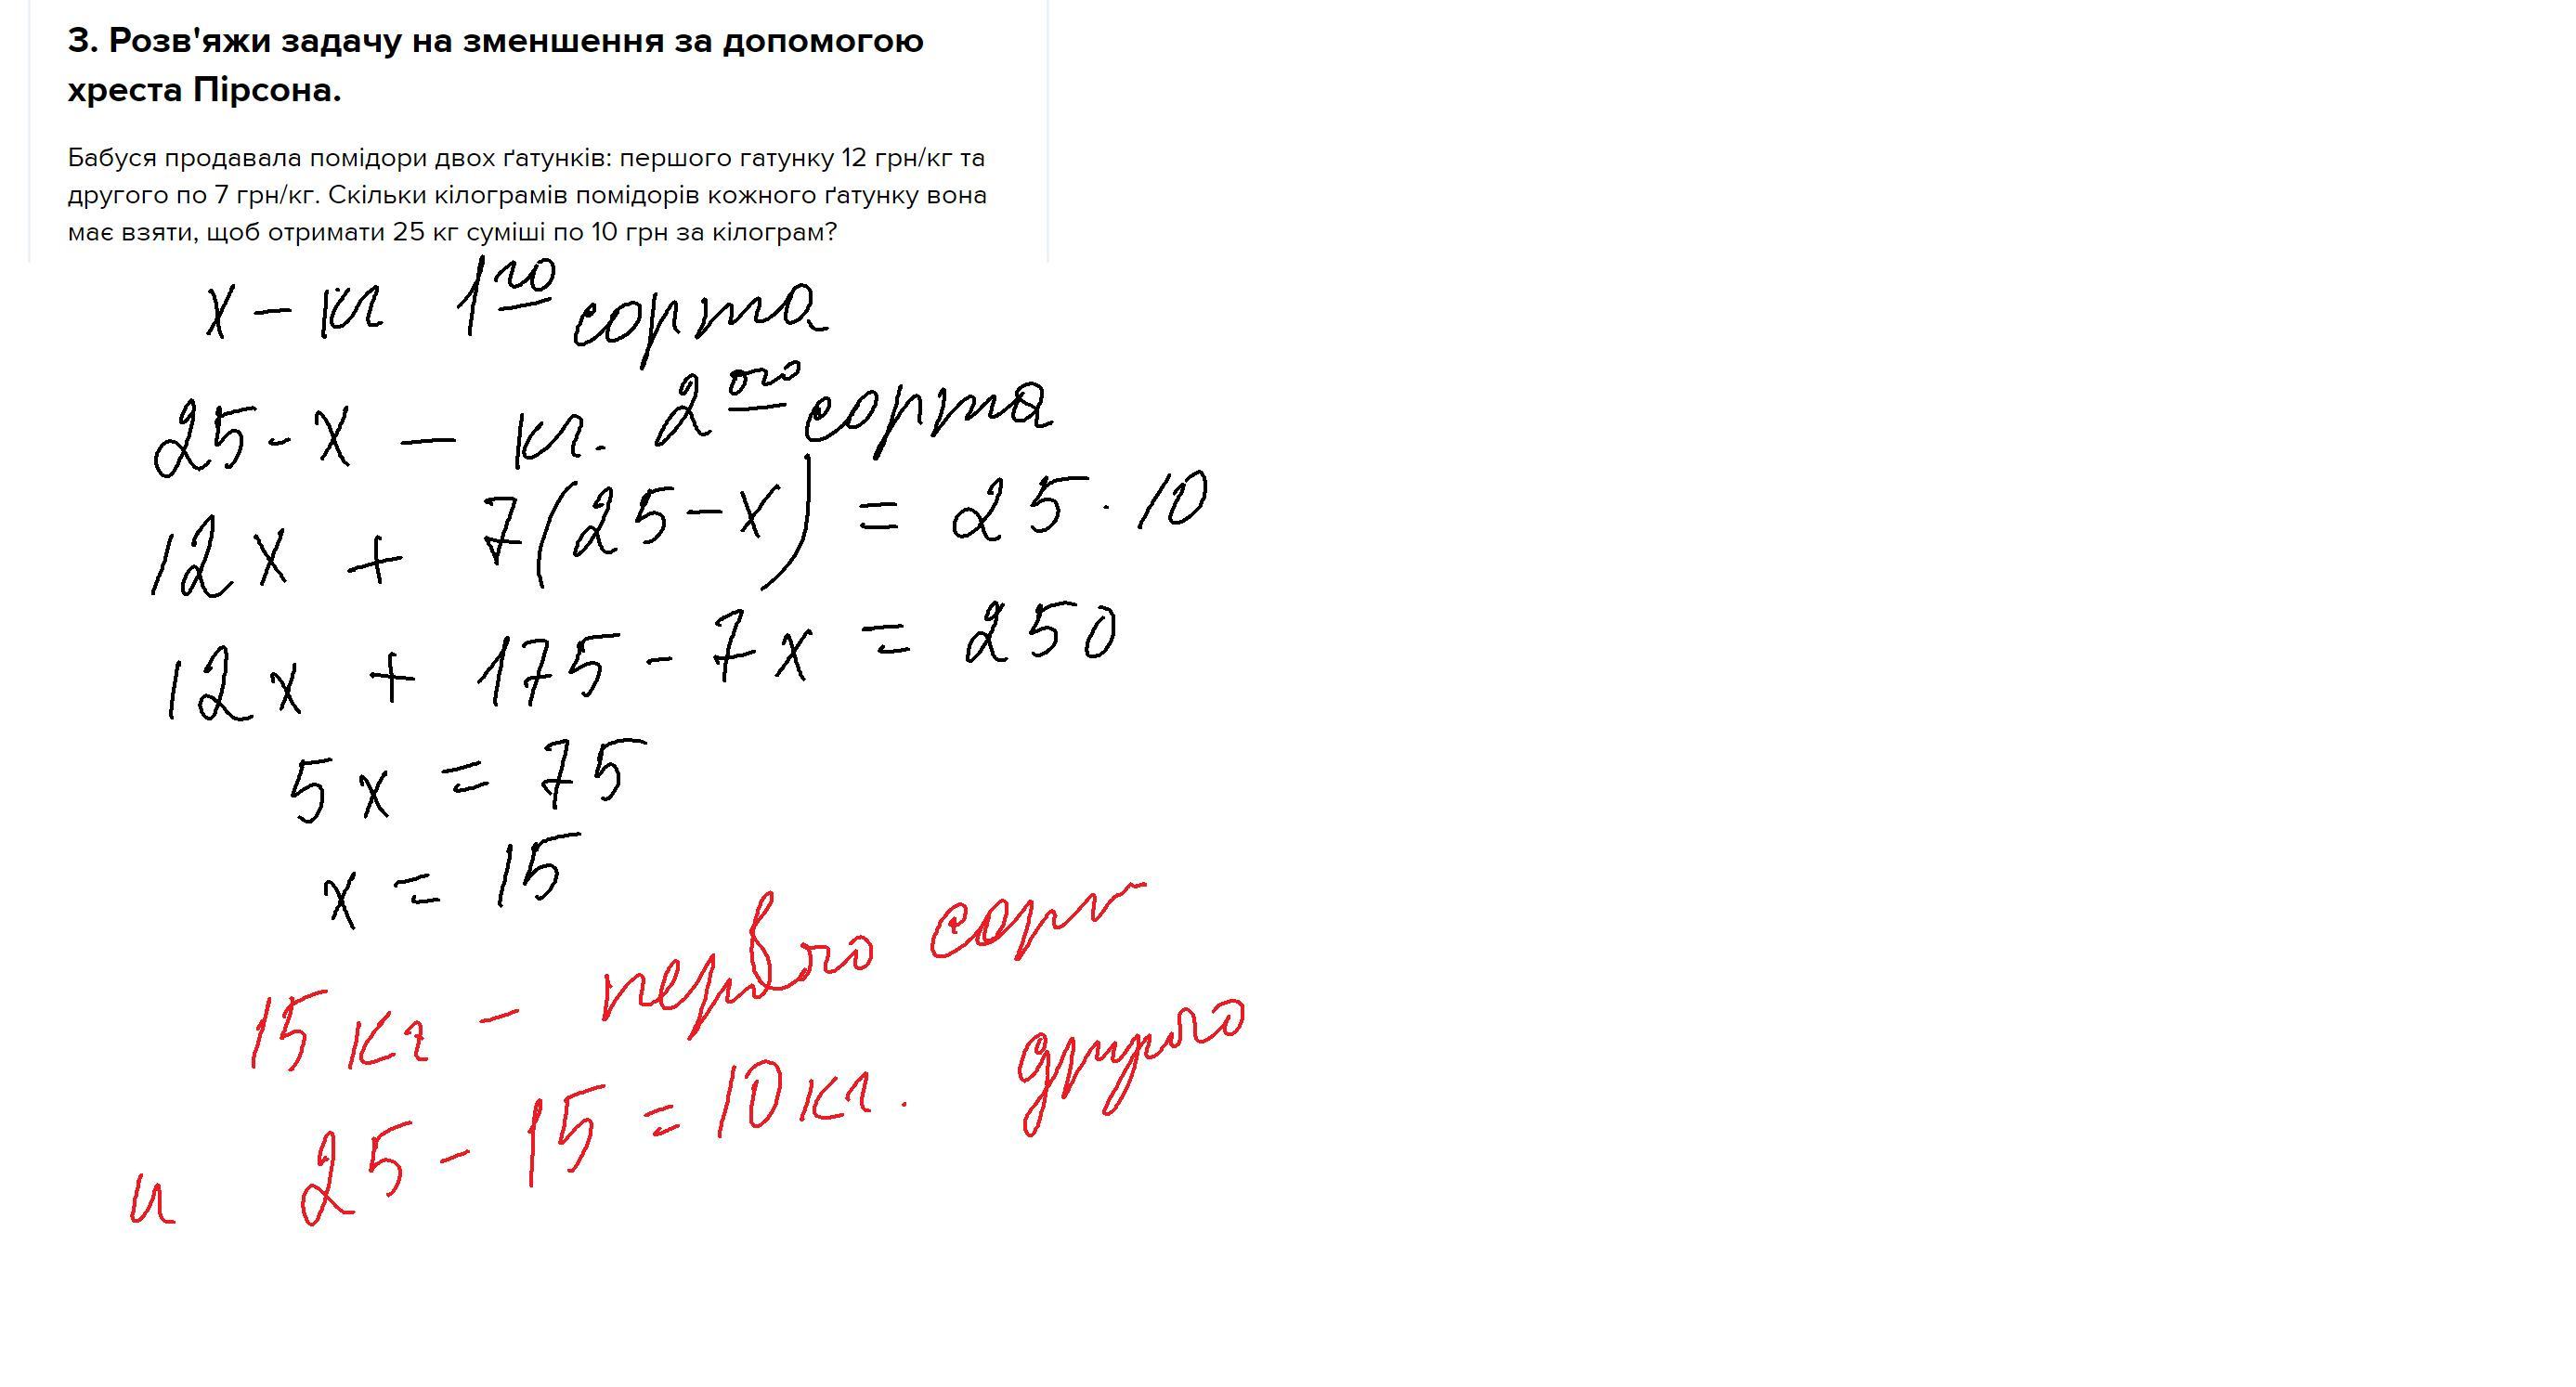 3. Розв'яжи задачу на зменшення за допомогою
хреста Пірсона.
Бабуся продавала помідори двох ґатунків: першого гатунку 12 грн/кг та
другого по 7 грн/кг. Скільки кілограмів помідорів кожного ґатунку вона
має взяти, щоб отримати 25 кг суміші по 10 грн за кілограм?
x - кг 1го сорта
25 - x - кг. 2ого сорта
12x + 7(25-x) = 25·10
12x + 175 - 7x = 250
5x = 75
x = 15
15 кг - первого сорт
и 25 - 15 = 10 кг. другого